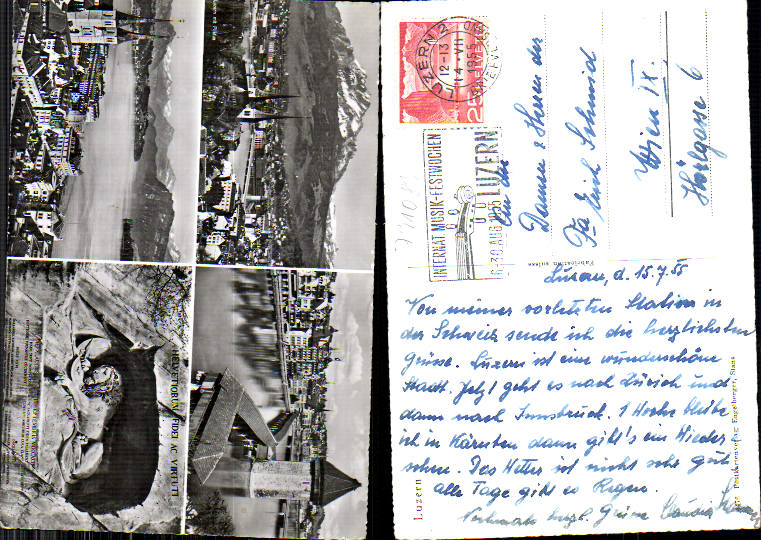 HELVETIORUM FIDEI AC VIRTUTI
LUZERN 2
12-13
14.VII
1955
HELVETIA
25
INTERNAT MUSIK-FESTWOCHEN
LUZERN
6.-30. AUG 1955
An die
Damen & Herren der
Fa Erich Schmid
Wien IX.
Hörlgasse 6
Fabrication suisse
Luzern, d. 15.7.55
Von meiner vorletzten Station in
der Schweiz sende ich die herzlichsten
Grüsse. Luzern ist eine wunderschöne
Stadt. Jetzt geht es nach Zürich und
dann nach Innsbruck. 1 Woche bleibe
ich in Kärnten dann gibt's ein Wieder
sehen. Das Wetter ist nicht sehr gut
alle Tage gibt es Regen.
Nochmals herzl. Grüsse Claudia
Luzern
Postkartenverlag Engelberger, Stans